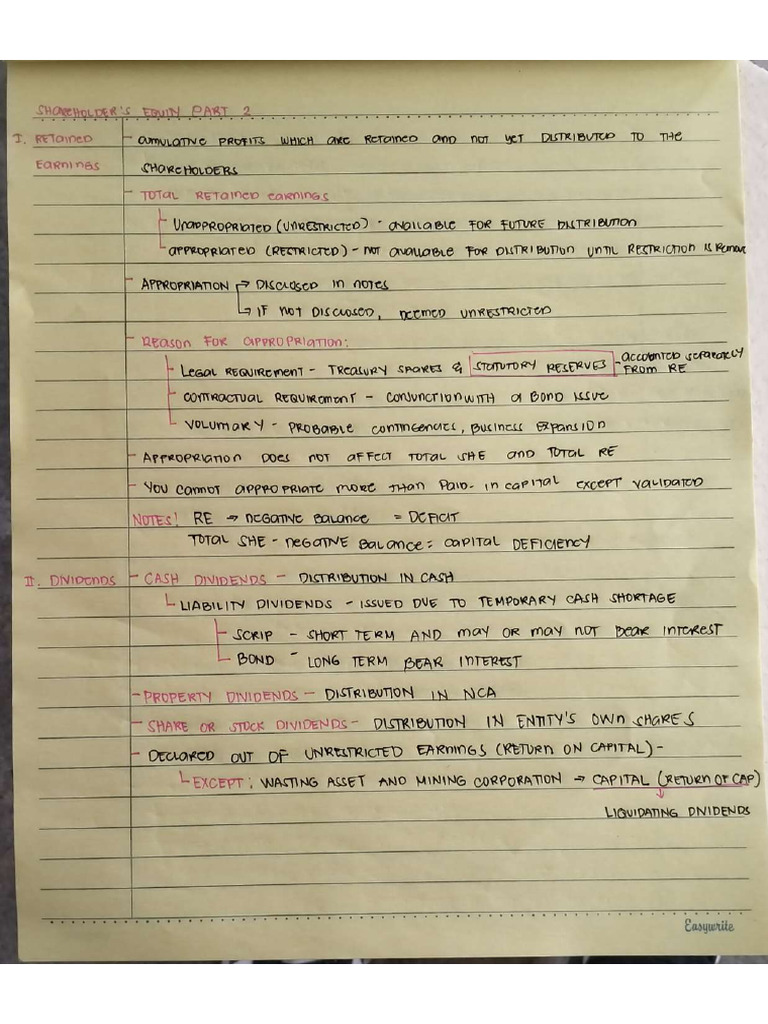 SHAREHOLDER'S EQUIY PART 2
I. RETAINED - CUMULATIVE PROFITS WHICH ARE RETAINED AND NOT YET DISTRIBUTED TO THE
EARNINGS SHAREHOLDERS
- TOTAL RETAINED EARNINGS
UNAPPROPRIATED (UNRESTRICTED) - AVAILABLE FOR FUTURE DISTRIBUTION
APPROPRIATED (RESTRICTED) - NOT AVAILABLE FOR DISTRIBUTION UNTIL RESTRICTION IS REMOVE
- APPROPRIATION → DISCLOSED IN NOTES
↳ IF NOT DISCLOSED, DEEMED UNRESTRICTED
- REASON FOR APPROPRIATION:
- LEGAL REQUIREMENT - TREASURY SHARES & STATUTORY RESERVES - ACCOUNTED SEPARATELY
FROM RE
- CONTRACTUAL REQUIREMENT - CONJUNCTION WITH A BOND ISSUE
VOLUNTARY - PROBABLE CONTINGENCIES, BUSINESS EXPANSION
- APPROPRIATION DOES NOT AFFECT TOTAL SHE AND TOTAL RE
- YOU CANNOT APPROPRIATE MORE THAN PAID-IN CAPITAL EXCEPT VALIDATED
NOTES! RE → NEGATIVE BALANCE = DEFICIT
TOTAL SHE - NEGATIVE BALANCE = CAPITAL DEFICIENCY
II. DIVIDENDS - CASH DIVIDENDS - DISTRIBUTION IN CASH
LIABILITY DIVIDENDS - ISSUED DUE TO TEMPORARY CASH SHORTAGE
SCRIP - SHORT TERM AND MAY OR MAY NOT BEAR INTEREST
BOND - LONG TERM BEAR INTEREST
- PROPERTY DIVIDENDS - DISTRIBUTION IN NCA
- SHARE OR STOCK DIVIDENDS - DISTRIBUTION IN ENTITY'S OWN SHARES
- DECLARED OUT OF UNRESTRICTED EARNINGS (RETURN ON CAPITAL) -
EXCEPT: WASTING ASSET AND MINING CORPORATION → CAPITAL (RETURN OF CAP)
↓
LIQUIDATING DIVIDENDS
Easywrite